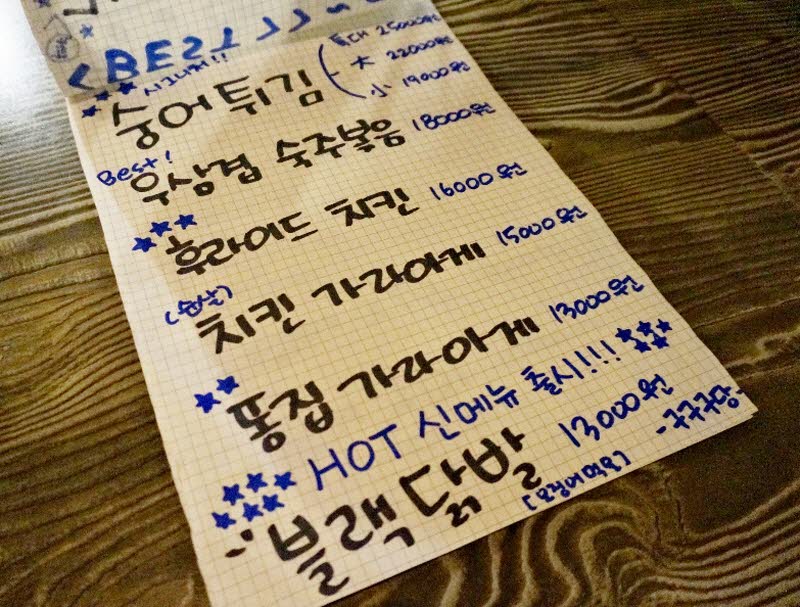 <BEST
시그니처!!
숭어튀김 (특대 25000원
大 22000원
小 19000원
Best!
우삼겹 숙주볶음 18000원
후라이드 치킨 16000원
(순살)
치킨 가라아게 15000원
똥집 가라아게 13000원
HOT 신메뉴 출시!!!
블랙닭발 13000원
-구구당-